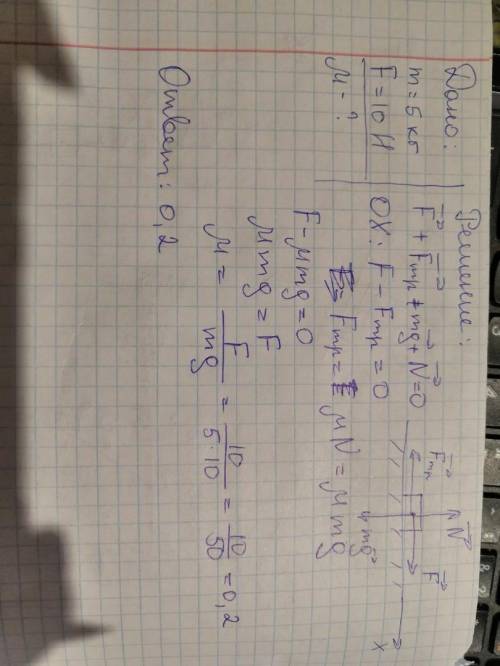 Дано:
m = 5 кг
F = 10 Н
μ - ?
Решение:
F⃗ + F⃗тр + mg⃗ + N⃗ = 0
OX: F - Fтр = 0
Fтр = μN = μmg
F - μmg = 0
μmg = F
μ = F/mg = 10/5·10 = 10/50 = 0,2
Ответ: 0,2
N⃗
F⃗тр
F⃗
mg⃗
x